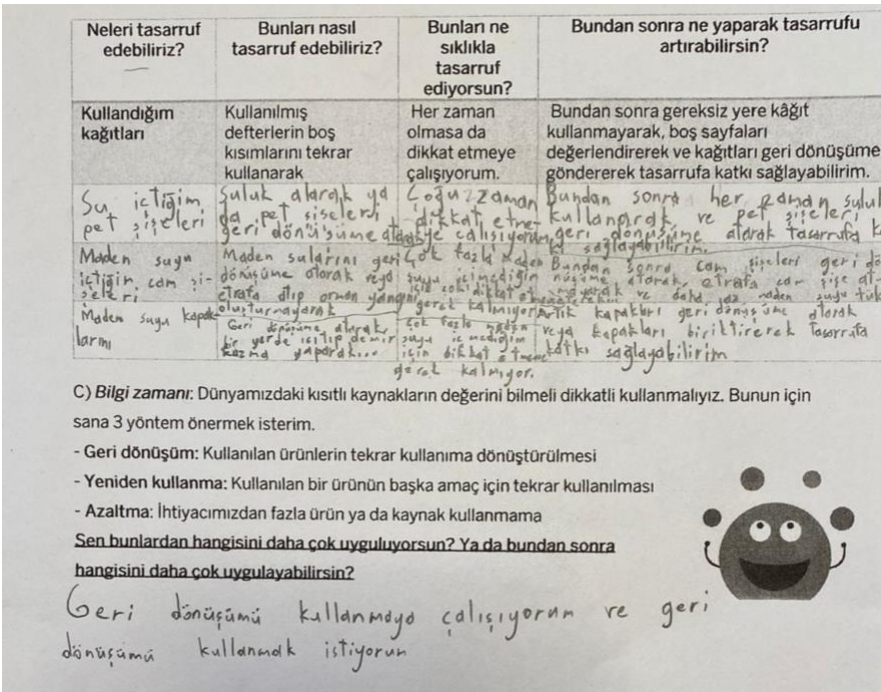 Neleri tasarruf edebiliriz?
Bunları nasıl tasarruf edebiliriz?
Bunları ne sıklıkla tasarruf ediyorsun?
Bundan sonra ne yaparak tasarrufu artırabilirsin?
Kullandığım kağıtları
Kullanılmış defterlerin boş kısımlarını tekrar kullanarak
Her zaman olmasa da dikkat etmeye çalışıyorum.
Bundan sonra gereksiz yere kâğıt kullanmayarak, boş sayfaları değerlendirerek ve kağıtları geri dönüşüme göndererek tasarrufa katkı sağlayabilirim.
Su içtiğim pet şişeleri
Suluk alarak ya da pet şişeleri geri dönüşüme atarak
Çoğu zaman dikkat etmeye çalışıyorum
Bundan sonra her zaman suluk kullanarak ve pet şişeleri geri dönüşüme atarak tasarrufa sağlayabilirim.
Maden suyu içtiğim cam şişeleri
Maden sularını geri dönüşüme atarak veya etrafa atıp orman yangını oluşturmayarak
Çok fazla maden suyu içmediğim için çok dikkat etmeme gerek kalmıyor
Bundan sonra cam şişeleri geri dönüşüme atarak, etrafa cam şişe ve daha az maden suyu
Maden suyu kapaklarını
Geri dönüşüme atarak, bir yerde ısıtıp demir kazma yaparak...
Çok fazla maden suyu içmediğim için dikkat etmeme gerek kalmıyor.
Artık kapakları geri dönüşüme atarak veya kapakları biriktirerek tasarrufa katkı sağlayabilirim
C) Bilgi zamanı: Dünyamızdaki kısıtlı kaynakların değerini bilmeli dikkatli kullanmalıyız. Bunun için
sana 3 yöntem önermek isterim.
- Geri dönüşüm: Kullanılan ürünlerin tekrar kullanıma dönüştürülmesi
- Yeniden kullanma: Kullanılan bir ürünün başka amaç için tekrar kullanılması
- Azaltma: İhtiyacımızdan fazla ürün ya da kaynak kullanmama
Sen bunlardan hangisini daha çok uyguluyorsun? Ya da bundan sonra
hangisini daha çok uygulayabilirsin?
Geri dönüşümü kullanmaya çalışıyorum ve geri
dönüşümü kullanmak istiyorum